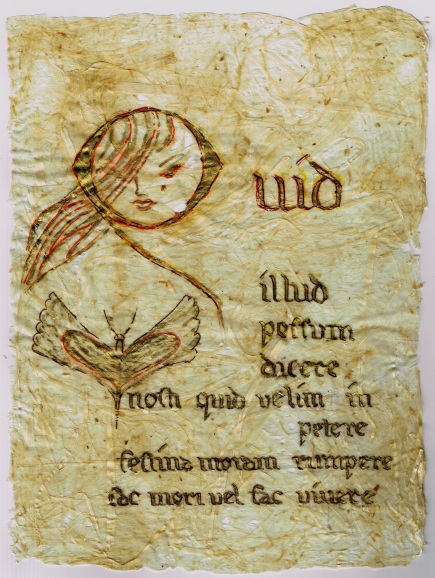 Quid
illud
pessum
dicere
nosti quid velim in
petere
festina moram rumpere
fac mori vel fac vivere